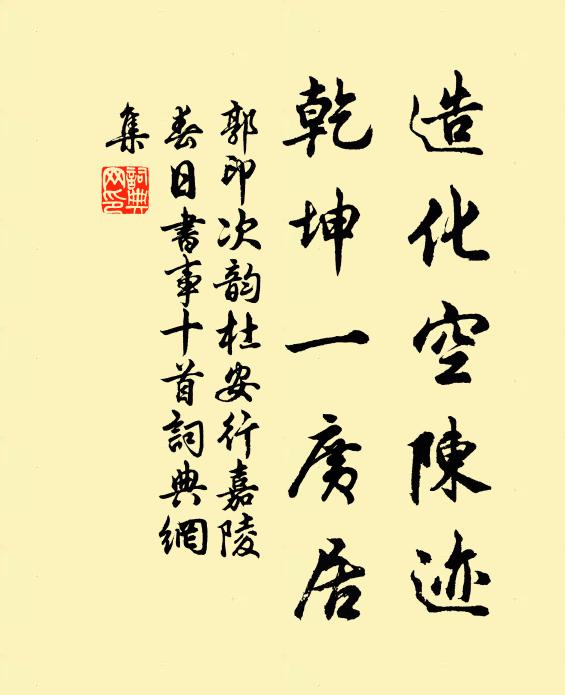 造化空陳迹
乾坤一廣居
郭印次韵杜安行嘉陵
春日書事十首詞典網
集
詞典网印